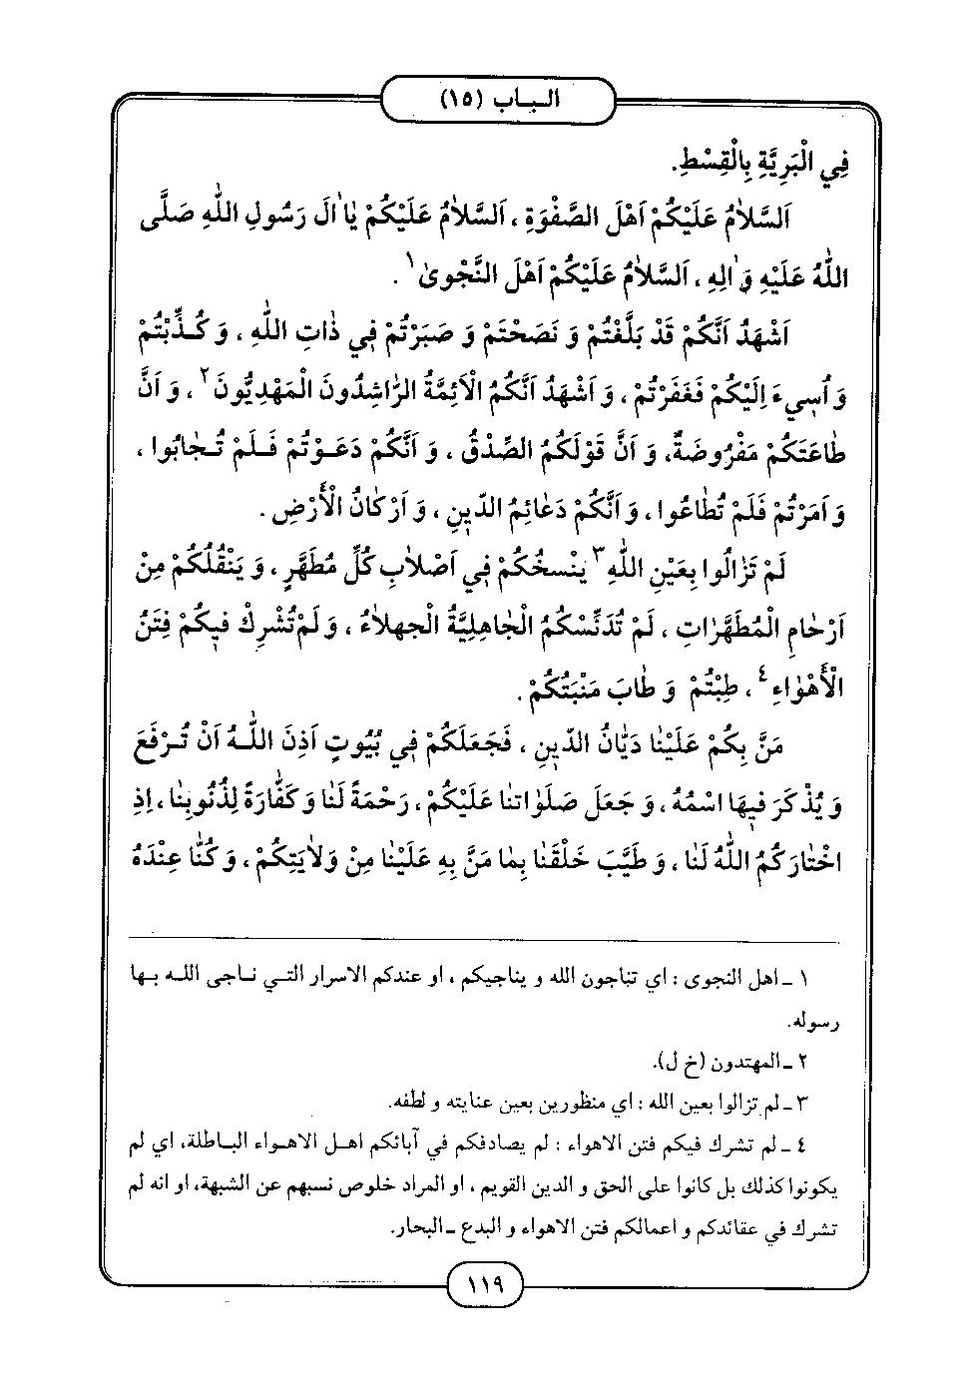 الباب (١٥)
فِي الْبَرِيَّةِ بِالْقِسْطِ.
اَلسَّلاٰمُ عَلَيْكُمْ اَهْلَ الصَّفْوَةِ ، اَلسَّلاٰمُ عَلَيْكُمْ يٰا اٰلَ رَسُولِ اللّٰهِ صَلَّى
اللّٰهُ عَلَيْهِ وَ اٰلِهِ ، اَلسَّلاٰمُ عَلَيْكُمْ اَهْلَ النَّجْوىٰ ١ .
اَشْهَدُ اَنَّكُمْ قَدْ بَلَّغْتُمْ وَ نَصَحْتَمْ وَ صَبَرْتُمْ فِي ذٰاتِ اللّٰهِ ، وَ كُذِّبْتُمْ
وَ اُسيءَ اِلَيْكُمْ فَغَفَرْتُمْ ، وَ اَشْهَدُ اَنَّكُمُ الْاَئِمَّةُ الرّٰاشِدُونَ الْمَهْدِيُّونَ ٢ ، وَ اَنَّ
طٰاعَتَكُمْ مَفْرُوضَةٌ، وَ اَنَّ قَوْلَكُمُ الصِّدْقُ ، وَ اَنَّكُمْ دَعَوْتُمْ فَلَمْ تُجٰابُوا ،
وَ اَمَرْتُمْ فَلَمْ تُطٰاعُوا ، وَ اَنَّكُمْ دَعٰائِمُ الدّينِ ، وَ اَرْكٰانُ الْأَرْضِ .
لَمْ تَزٰالُوا بِعَيْنِ اللّٰهِ ٣ يَنْسخُكُمْ فِي اَصْلاٰبِ كُلِّ مُطَهَّرٍ ، وَ يَنْقُلُكُمْ مِنْ
اَرْحٰامِ الْمُطَهَّرٰاتِ ، لَمْ تُدَنِّسْكُمُ الْجٰاهِلِيَّةُ الْجهلاٰءُ ، وَ لَمْ تُشْرِكْ فيكُمْ فِتَنُ
الْأَهْوٰاءِ ٤ ، طِبْتُمْ وَ طٰابَ مَنْبَتُكُمْ .
مَنَّ بِكُمْ عَلَيْنٰا دَيّٰانُ الدّينِ ، فَجَعَلَكُمْ فِي بُيُوتٍ اَذِنَ اللّٰهُ اَنْ تُرْفَعَ
وَ يُذْكَرَ فيهَا اسْمُهُ ، وَ جَعَلَ صَلَوٰاتنٰا عَلَيْكُمْ ، رَحْمَةً لَنٰا وَ كَفّٰارَةً لِذُنُوبِنٰا ، اِذِ
اخْتٰارَكُمُ اللّٰهُ لَنٰا ، وَ طَيَّبَ خَلْقَنٰا بِمٰا مَنَّ بِهِ عَلَيْنٰا مِنْ وَلاٰيَتِكُمْ ، وَ كُنّٰا عِنْدَهُ
١ ـ اهل النجوى : اي تناجون الله و يناجيكم ، او عندكم الاسرار التي ناجى الله بها
رسوله.
٢ ـ المهتدون (خ ل).
٣ ـ لم تزالوا بعين الله : اي منظورين بعين عنايته و لطفه.
٤ ـ لم تشرك فيكم فتن الاهواء : لم يصادفكم في آبائكم اهل الاهواء الباطلة، اي لم
يكونوا كذلك بل كانوا على الحق و الدين القويم ، او المراد خلوص نسبهم عن الشبهة، او انه لم
تشرك في عقائدكم و اعمالكم فتن الاهواء و البدع ـ البحار.
١١٩